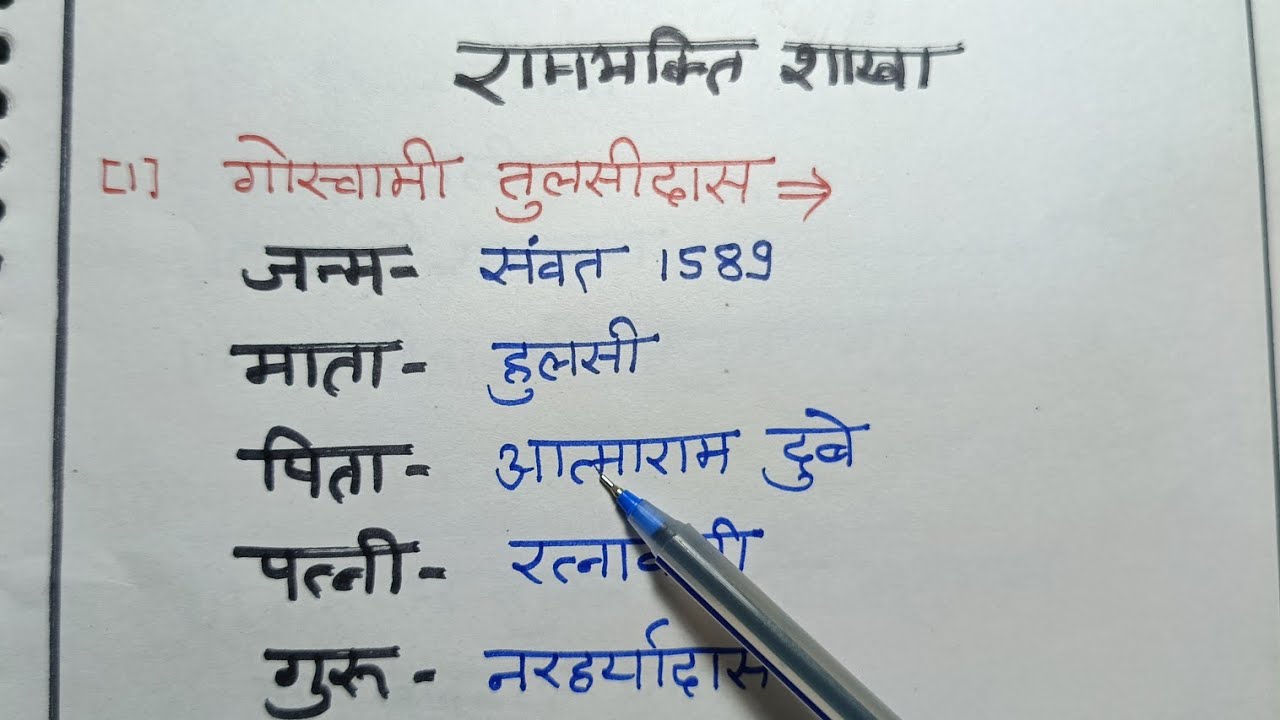 रामभक्ति शाखा
[1] गोस्वामी तुलसीदास ⇒
जन्म- संवत 1589
माता- हुलसी
पिता- आत्माराम दुबे
पत्नी-
गुरू- नरहर्यादास